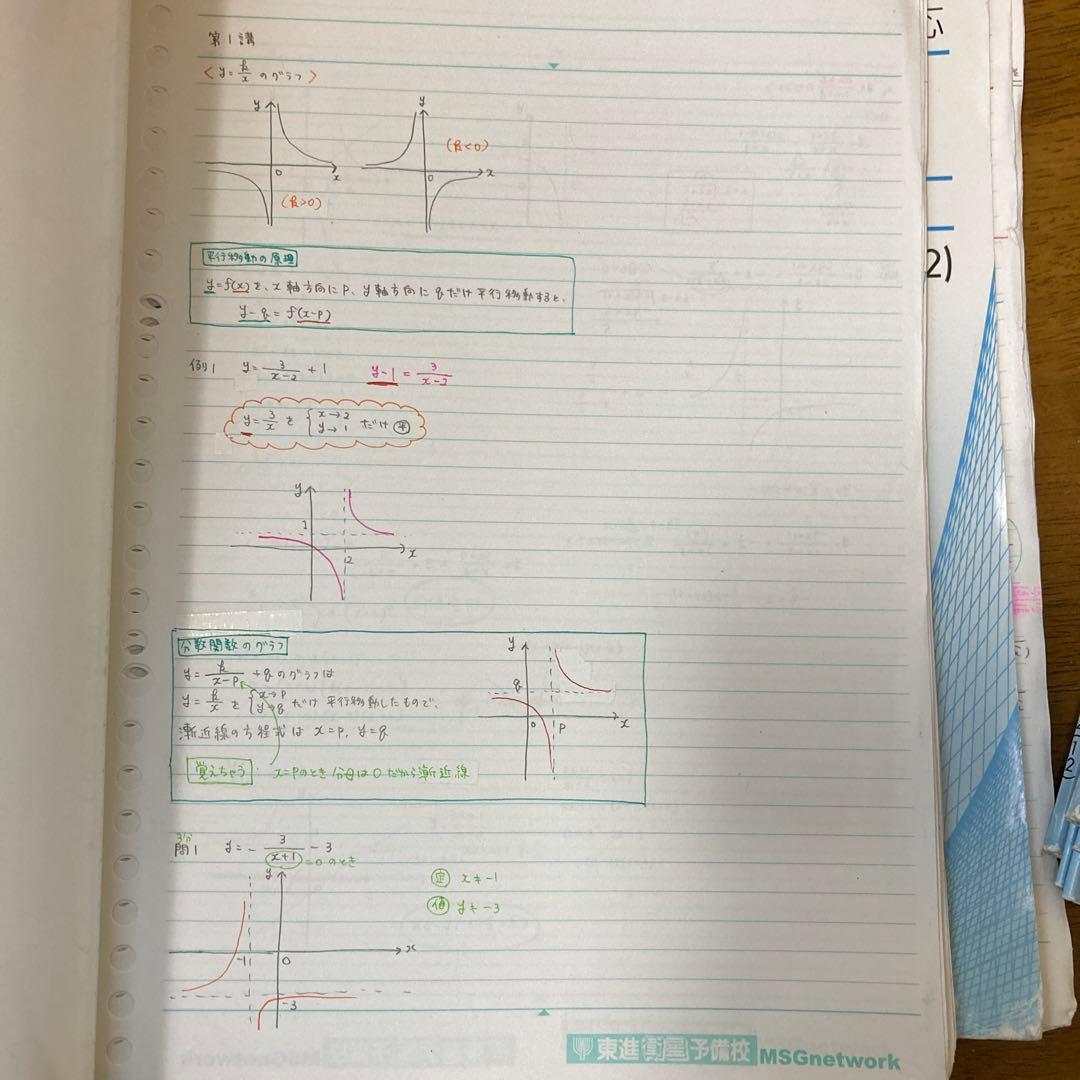 第1講
〈y=k/xのグラフ〉
y
y
(k<0)
0
x
0
x
(k>0)
平行移動の原理
y=f(x)を、x軸方向にp、y軸方向にqだけ平行移動すると、
y-q=f(x-p)
例1 y=3/(x-2)+1 y-1=3/(x-2)
y=3/xを{x→2 y→1 だけ㊥
y
1
x
2
分数関数のグラフ
y=k/(x-p)+qのグラフは
y=k/xを{x→p y→q だけ平行移動したもので、
漸近線の方程式は x=p, y=q
覚えちゃう x=pのとき分母は0だから漸近線
y
q
0
p
x
3分
問1 y=-3/(x+1)-3
=0のとき
y
定 x≠-1
値 y≠-3
x
-1
0
-3
東進衛星予備校 MSGnetwork
2)